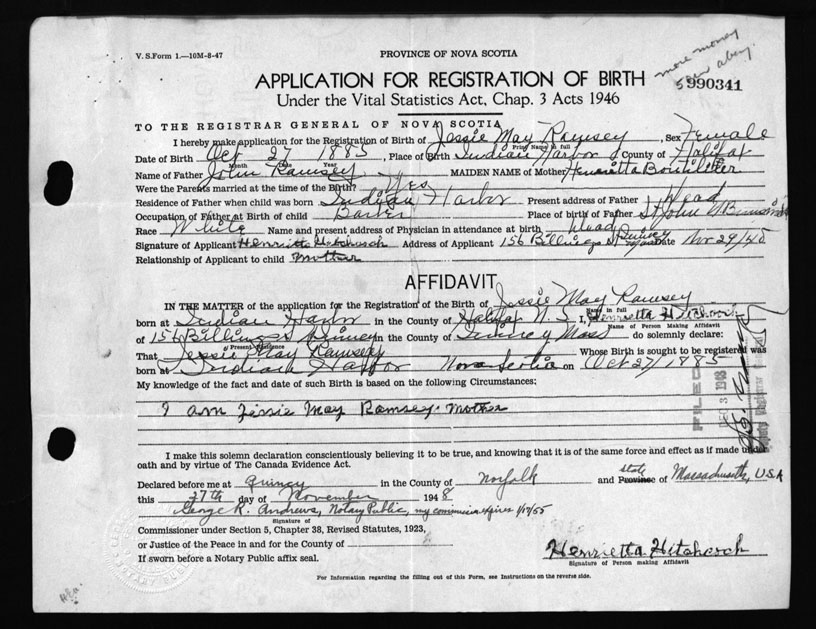 V. S. Form 1.—10M-8-47
PROVINCE OF NOVA SCOTIA
more money
990341
APPLICATION FOR REGISTRATION OF BIRTH
Under the Vital Statistics Act, Chap. 3 Acts 1946
TO THE REGISTRAR GENERAL OF NOVA SCOTIA
I hereby make application for the Registration of Birth of Jessie May Ramsey, Sex Female
Print Name in full
Date of Birth Oct 27 1885, Place of Birth Indian Harbor County of Halifax
Month Date Year
Name of Father John Ramsey MAIDEN NAME of Mother Henrietta Boutilier
Were the Parents married at the time of the Birth? Yes
Residence of Father when child was born Indian Harbor Present address of Father Dead
Occupation of Father at Birth of child Place of birth of Father St John N Brunswick
Race White Name and present address of Physician in attendance at birth Dead
Signature of Applicant Henrietta Hitchcock Address of Applicant 156 Billings St Quincy Mass Date Nov 29/48
Relationship of Applicant to child Mother
AFFIDAVIT
IN THE MATTER of the application for the Registration of the Birth of Jessie May Ramsey
Name in full
born at Indian Harbor in the County of Halifax N. S I, Henrietta Hitchcock
Name of Person Making Affidavit
of 156 Billings St Quincy in the County of Quincy Mass do solemnly declare:
Present Residence
That Jessie May Ramsey Whose Birth is sought to be registered was
born at Indian Harbor Nova Scotia on Oct 27/1885
My knowledge of the fact and date of such Birth is based on the following Circumstances:
I am Jessie May Ramsey. Mother
FILED
DEC 3 1948
I make this solemn declaration conscientiously believing it to be true, and knowing that it is of the same force and effect as if made under
oath and by virtue of The Canada Evidence Act.
Declared before me at Quincy in the County of Norfolk and state Province of Massachusetts, USA
this 27th day of November 1948
George R. Andrews, Notary Public, my commission expires 1/17/55
Signature of
Commissioner under Section 5, Chapter 38, Revised Statutes, 1923,
or Justice of the Peace in and for the County of
If sworn before a Notary Public affix seal.
Henrietta Hitchcock
Signature of Person making Affidavit
For Information regarding the filling out of this Form, see Instructions on the reverse side.